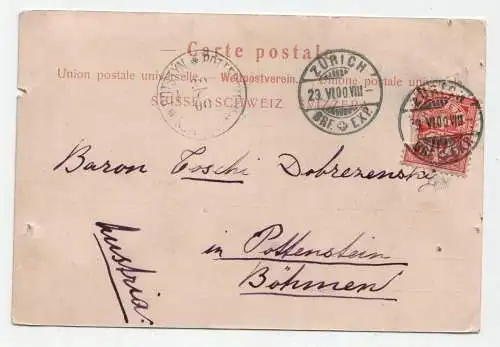 Carte postale.
Union postale universelle. — Weltpostverein. — Unione postale universale.
SUISSE. SCHWEIZ. SVIZZERA.
ZÜRICH
23.VI.00.VIII
BRF. EXP.
Baron Toschi Dobrezensky
in Pottenstein
Böhmen
Austria.